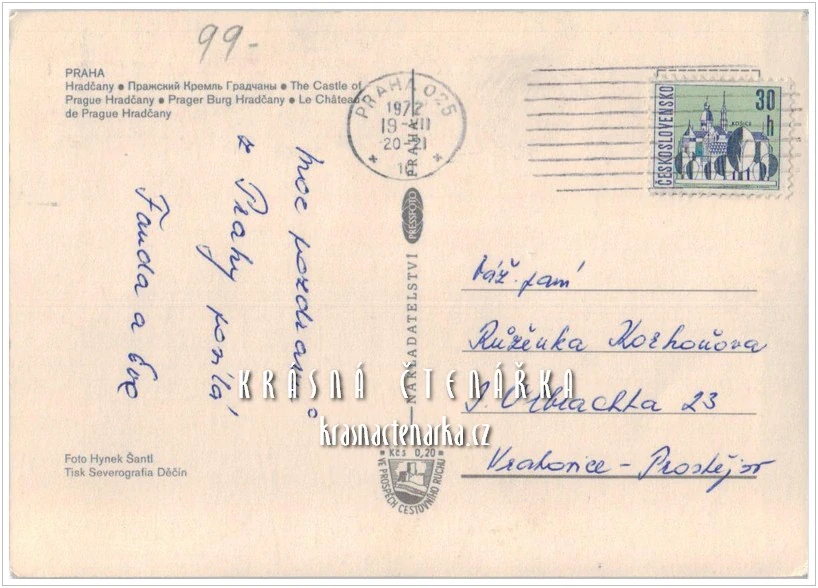 99-
PRAHA
Hradčany ● Пражский Кремль Градчаны ● The Castle of
Prague Hradčany ● Prager Burg Hradčany ● Le Château
de Prague Hradčany
PRAHA 025
1972
19 -VII
20-21
PRAHA
ČESKOSLOVENSKO
30
h
Moc pozdravů
z Prahy posílá
Fanda a Eva
NAKLADATELSTVÍ PRESSFOTO PRAHA
Váž. paní
Růženka Kozhoňova
I. Olbrachta 23
Vrahovice - Prostějov
KRÁSNÁ ČTENÁŘKA
krasnactenarka.cz
Kčs 0,20
VE PROSPĚCH CESTOVNÍHO RUCHU
Foto Hynek Šantl
Tisk Severografia Děčín